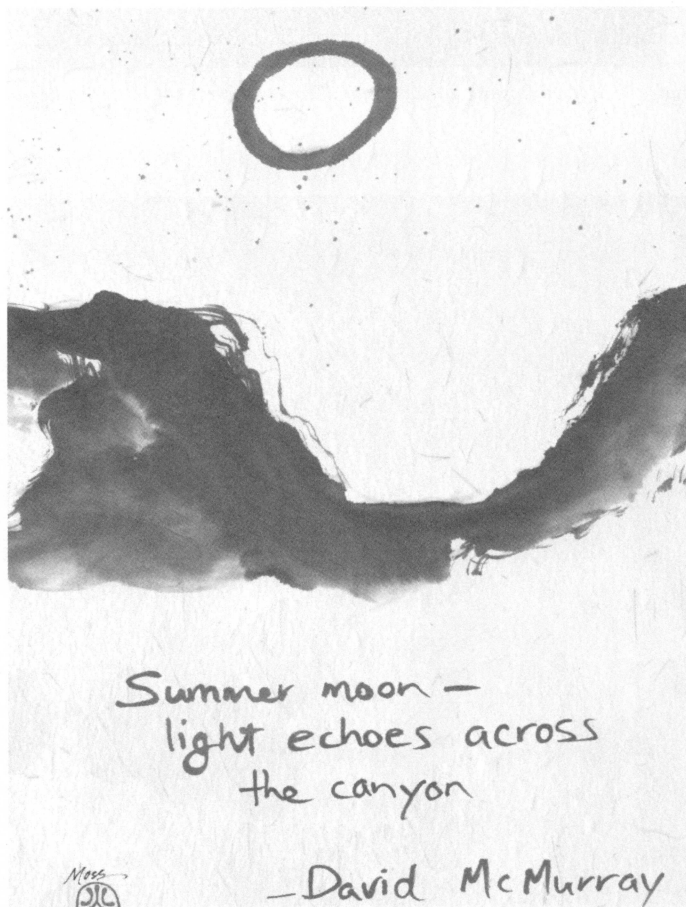 Summer moon –
light echoes across
the canyon
– David McMurray
Moss